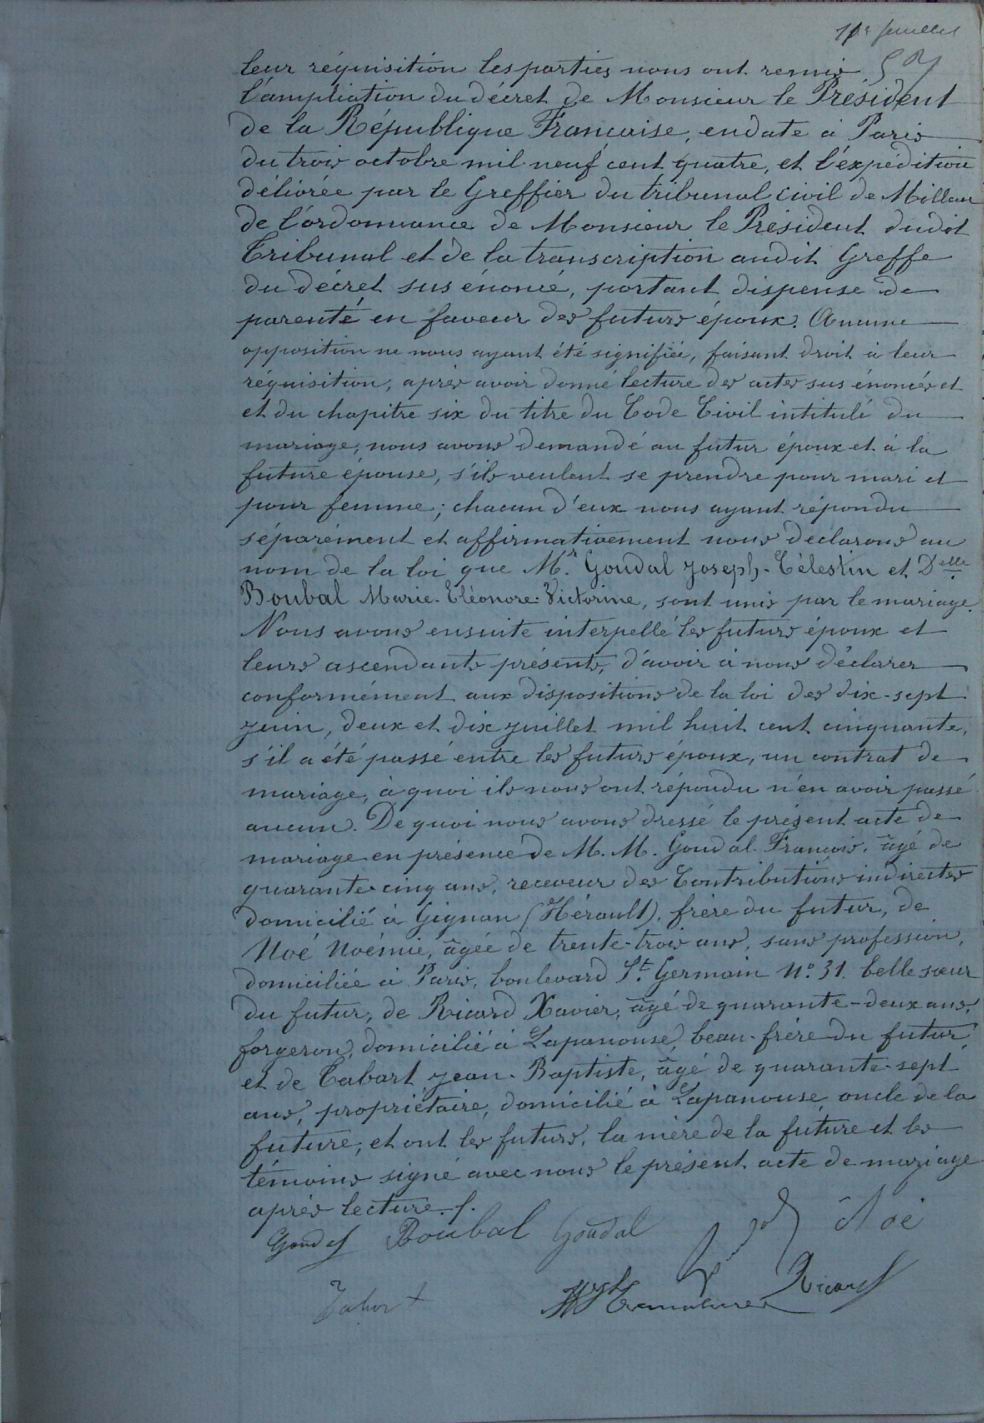 feuillet
leur réquisition les parties nous ont remis
l'ampliation du décret de Monsieur le Président
de la République Française, en date à Paris
du trois octobre mil neuf cent quatre, et l'éxpédition
délivrée par le Greffier du tribunal civil de Millau
de l'ordonnance de Monsieur le Président dudit
Tribunal et de la transcription audit Greffe
du décret sus énoncé, portant dispense de
parenté en faveur des futurs époux. Aucune
opposition ne nous ayant été signifiée, faisant droit à leur
réquisition, après avoir donné lecture des actes sus énoncés et
et du chapitre six du titre du Code Civil intitulé du
mariage, nous avons demandé au futur époux et à la
future épouse, s'ils veulent se prendre pour mari et
pour femme; chacun d'eux nous ayant répondu
séparément et affirmativement nous déclarons au
nom de la loi que Mr. Goudal Joseph-Célestin et Delle
Boubal Marie-Eléonore-Victorine, sont unis par le mariage.
Nous avons ensuite interpellé les futurs époux et
leurs ascendants présents, d'avoir à nous déclarer
conformément aux dispositions de la loi des dix-sept
juin, deux et dix juillet mil huit cent cinquante,
s'il a été passé entre les futurs époux, un contrat de
mariage, à quoi ils nous ont répondu n'en avoir passé
aucun. De quoi nous avons dressé le présent acte de
mariage en présence de M. M. Goudal François, âgé de
quarante-cinq ans, receveur des Contributions indirectes
domicilié à Gignan (Hérault), frère du futur, de
Noé Noémie, âgée de trente-trois ans, sans profession,
domiciliée à Paris, boulevard St. Germain No. 31 belle sœur
du futur, de Ricard Xavier, âgé de quarante-deux ans,
forgeron, domicilié à Lapanouse beau-frère du futur
et de Tabart Jean-Baptiste, âgé de quarante-sept
ans, propriétaire, domicilié à Lapanouse oncle de la
future, et ont les futurs, la mère de la future et les
témoins signé avec nous le présent acte de mariage
après lecture.
Goudal Boubal Goudal Noé
Ricard